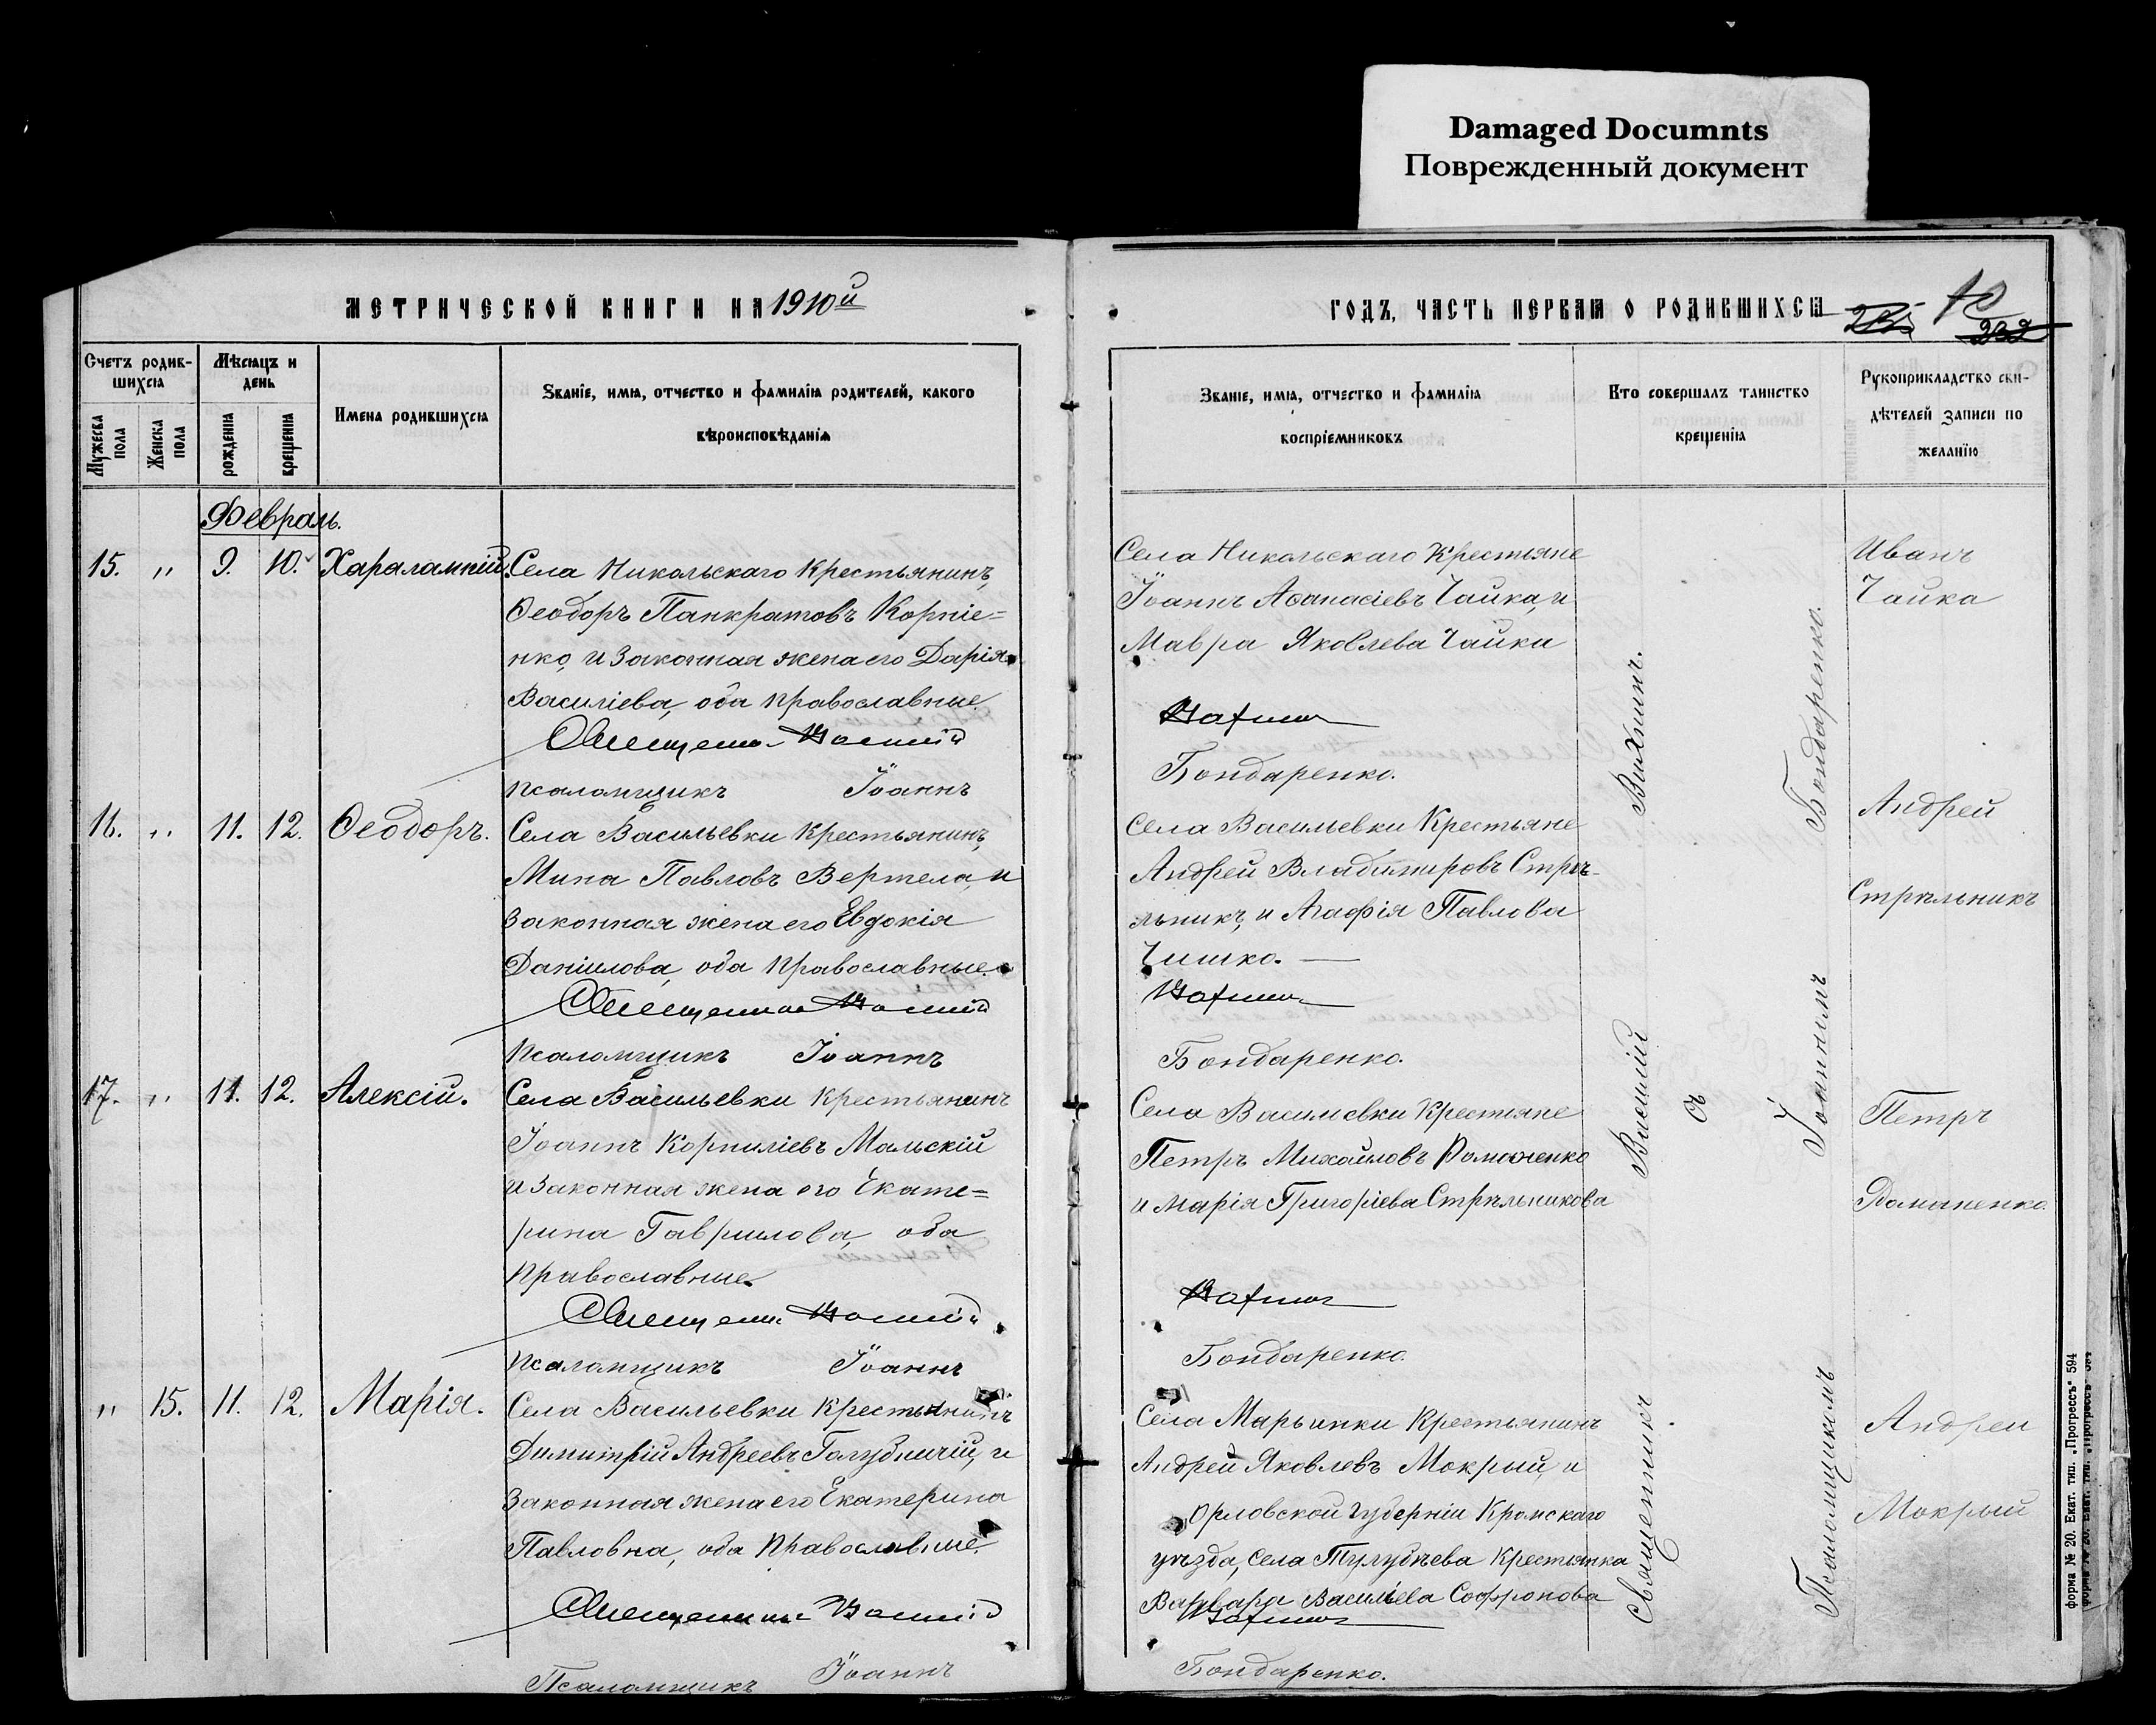 Damaged Documnts
Поврежденный документ
МЕТРИЧЕСКОЙ КНИГИ НА 1910й
Счетъ родив-
шихся
Мѣсяцъ и
день
Имена родившихся
Званіе, имя, отчество и фамилія родителей, какого
вѣроисповѣданія
Мужеска
пола
Женска
пола
рожденія
крещенія
Февраль.
15. " 9. 10. Харалампій. Села Никольскаго крестьянинъ,
Ѳеодоръ Панкратовъ Корніе=
нко, и законная жена его Дарія
Василіева, оба православные
Священ. Василій
псаломщикъ Іоаннъ
16. " 11. 12. Ѳеодоръ. Села Васильевки крестьянинъ,
Мина Павловъ Вертела, и
законная жена его Евдокія
Даніилова, оба православные.
Священник Василій
псаломщикъ Іоаннъ
17. " 11. 12. Алексій. Села Васильевки крестьянинъ
Іоаннъ Корниліевъ Мальскій
и законная жена его Екате=
рина Гаврилова, оба
православные.
Священ. Василій
псаломщикъ Іоаннъ
" 15. 11. 12. Марія. Села Васильевки крестьянинъ
Димитрій Андреевъ Голубничій, и
законная жена его Екатерина
Павловна, оба православные.
Священник Василій
Псаломщикъ Іоаннъ
ГОДЪ, ЧАСТЬ ПЕРВАЯ О РОДИВШИХСЯ
232
Званіе, имя, отчество и фамилія
воспріемниковъ
Кто совершалъ таинство
крещенія
Рукоприкладство сви-
дѣтелей записи по
желанію
Села Никольскаго крестьяне
Іоаннъ Аѳанасіевъ Чайка, и
Мавра Яковлева Чайка
Вахнин
Бондаренко.
Села Васильевки крестьяне
Андрей Владиміровъ Стрѣ-
льникъ, и Агафія Павлова
Чишко.
Вахнин
Бондаренко.
Села Васильевки крестьяне
Петръ Михайловъ Романенко
и Марія Григоріева Стрѣльникова
Вахнин
Бондаренко.
Села Марьинки крестьянинъ
Андрей Яковлевъ Мокрый, и
Орловской губерніи Кромскаго
уѣзда, села Тулубьева крестьянка
Варвара Василіева Софронова
Вахнин
Бондаренко.
Священникъ Василій Вахнинъ.
съ
Псаломщикомъ Іоанномъ Бондаренко.
Иванъ
Чайка
Андрей
Стрѣльникъ
Петръ
Романенко
Андрей
Мокрый
форма № 20. Екат. тип. „Прогрессъ“ 594